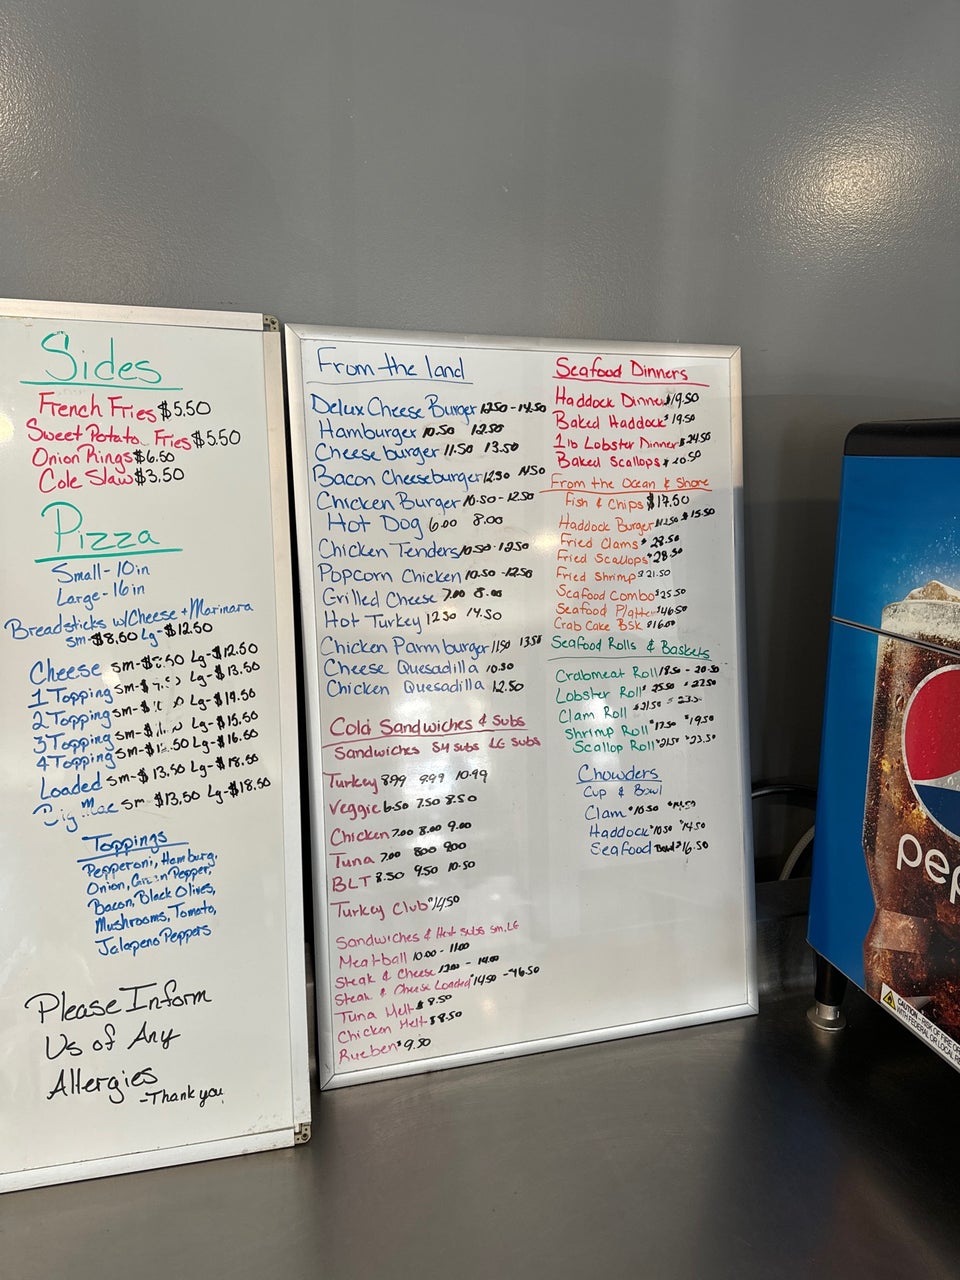 Sides
French Fries $5.50
Sweet Potato Fries $5.50
Onion Rings $6.50
Cole Slaw $3.50
Pizza
Small - 10in
Large - 16in
Breadsticks w/Cheese + Marinara
sm - $8.50 Lg - $12.50
Cheese sm - $ .50 Lg - $12.50
1 Topping sm - $ Lg - $13.50
2 Topping sm - $ Lg - $14.50
3 Topping sm - $ Lg - $15.50
4 Topping sm - $ .50 Lg - $16.50
Loaded sm - $13.50 Lg - $18.50
Big Mac sm $13.50 Lg - $18.50
Toppings
Pepperoni, Hamburg,
Onion, Green Pepper,
Bacon, Black Olives,
Mushrooms, Tomato,
Jalapeno Peppers
Please Inform
Us of Any
Allergies
- Thank you
From the land
Delux Cheese Burger 12.50 - 14.50
Hamburger 10.50 12.50
Cheese burger 11.50 13.50
Bacon Cheeseburger 12.50 14.50
Chicken Burger 10.50 - 12.50
Hot Dog 6.00 8.00
Chicken Tenders 10.50 - 12.50
Popcorn Chicken 10.50 - 12.50
Grilled Cheese 7.00 8.00
Hot Turkey 12.50 14.50
Chicken Parm burger 11.50 13.50
Cheese Quesadilla 10.50
Chicken Quesadilla 12.50
Cold Sandwiches & Subs
Sandwiches SM subs LG Subs
Turkey 8.99 9.99 10.99
Veggie 6.50 7.50 8.50
Chicken 7.00 8.00 9.00
Tuna 7.00 8.00 9.00
BLT 8.50 9.50 10.50
Turkey Club $14.50
Sandwiches & Hot subs sm, LG
Meatball 10.00 - 11.00
Steak & Cheese 12.00 - 14.00
Steak & Cheese Loaded $14.50 - $16.50
Tuna Melt $8.50
Chicken Melt $8.50
Rueben $9.50
Seafood Dinners
Haddock Dinner $19.50
Baked Haddock $19.50
1 lb Lobster Dinner $24.50
Baked Scallops $ .50
From the Ocean & Shore
Fish & Chips $17.50
Haddock Burger $15.50
Fried Clams $28.50
Fried Scallops $28.50
Fried Shrimp $21.50
Seafood Combo $25.50
Seafood Platter $46.50
Crab Cake Bsk $16.00
Seafood Rolls & Baskets
Crabmeat Roll 18.50 - 20.50
Lobster Roll $25.50 - $27.50
Clam Roll $21.50 - 23.50
Shrimp Roll $17.50 $19.50
Scallop Roll $21.50 $23.50
Chowders
Cup & Bowl
Clam $10.50 $14.50
Haddock $10.50 $14.50
Seafood Bowl $16.50
pep
CAUTION - RISK OF FIRE
WITH FEDERAL OR LOCAL